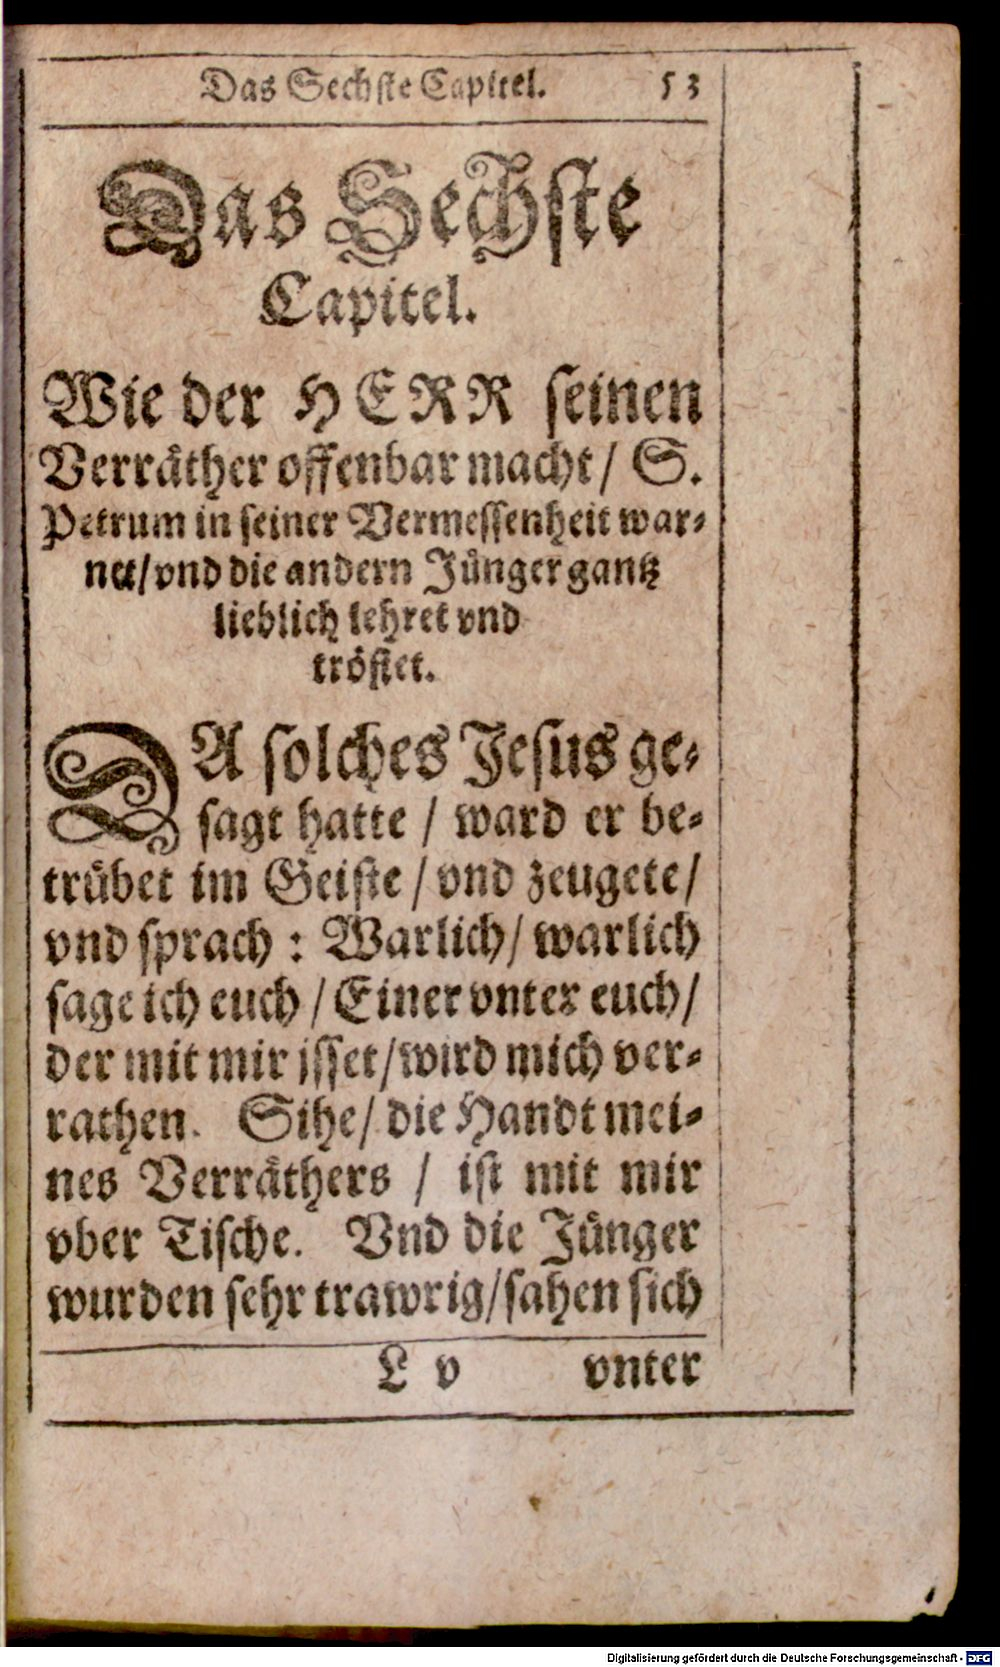 Das Sechste Capitel. 53
Das Sechste
Capitel.
Wie der HERR seinen
Verräther offenbar macht / S.
Petrum in seiner Vermessenheit war-
net / vnd die andern Jünger gantz
lieblich lehret vnd
tröstet.
DA solches Jesus ge-
sagt hatte / ward er be-
trübet im Geiste / vnd zeugete /
vnd sprach : Warlich / warlich
sage ich euch / Einer vnter euch /
der mit mir isset / wird mich ver-
rathen. Sihe / die Handt mei-
nes Verräthers / ist mit mir
vber Tische. Vnd die Jünger
wurden sehr trawrig / sahen sich
L v vnter
Digitalisierung gefördert durch die Deutsche Forschungsgemeinschaft - DFG